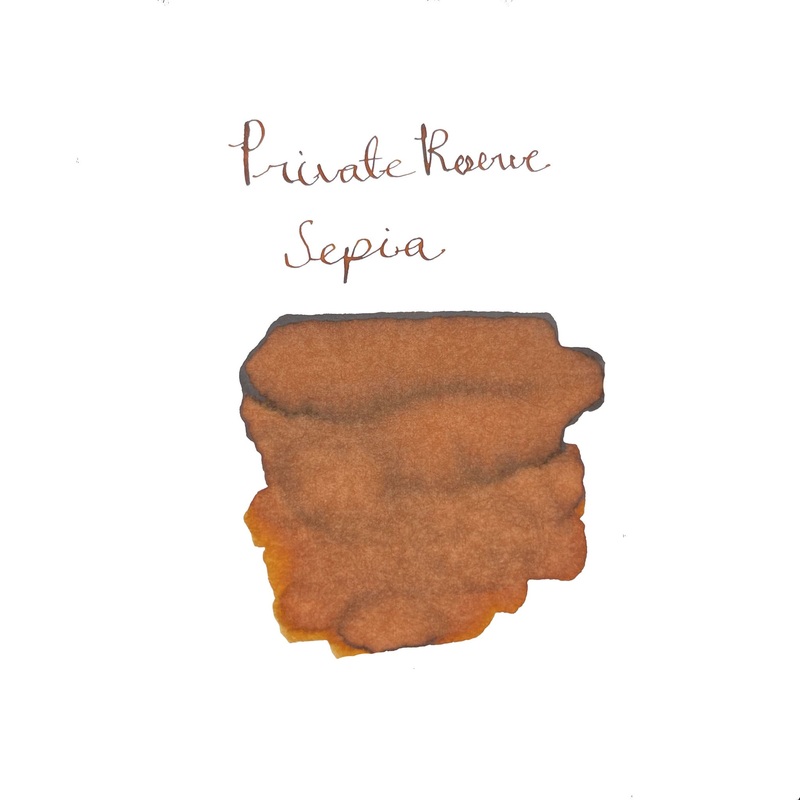 Private Reserve
Sepia